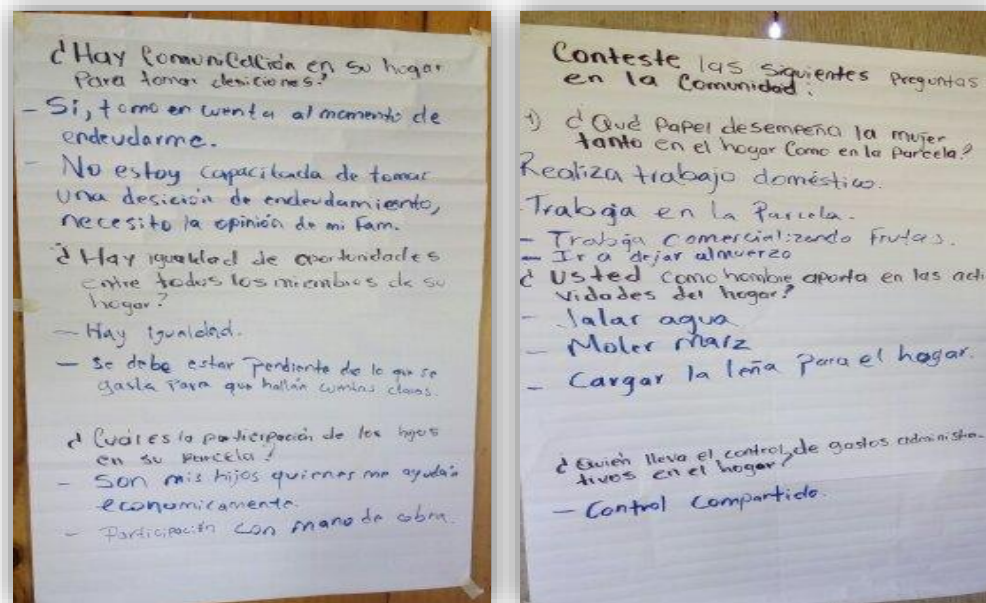 ¿Hay Comunicación en su hogar
Para tomar desiciones?
- Si, tomo en cuenta al momento de
endeudarme.
- No estoy capacitada de tomar
una desición de endeudamiento,
necesito la opinión de mi Fam.
¿Hay igualdad de oportunidades
entre todos los miembros de su
hogar?
- Hay igualdad.
- Se debe estar Pendiente de lo que se
gasta Para que hallán cuentas claras.
¿Cuál es la participación de los hijos
en su parcela?
- Son mis hijos quienes me ayudan
economicamente.
- Participación con mano de obra.
Conteste las siguientes Preguntas
en la Comunidad:
1) ¿Qué Papel desempeña la mujer
tanto en el hogar Como en la Parcela?
Realiza trabajo doméstico.
-Trabaja en la Parcela.
- Trabaja Comercializando Frutas.
- Ir a dejar almuerzo
¿Usted como hombre aporta en las acti
vidades del hogar?
- Jalar agua
- Moler Maíz
- Cargar la leña Para el hogar.
¿Quién lleva el control de gastos administra-
tivos en el hogar?
- Control Compartido.